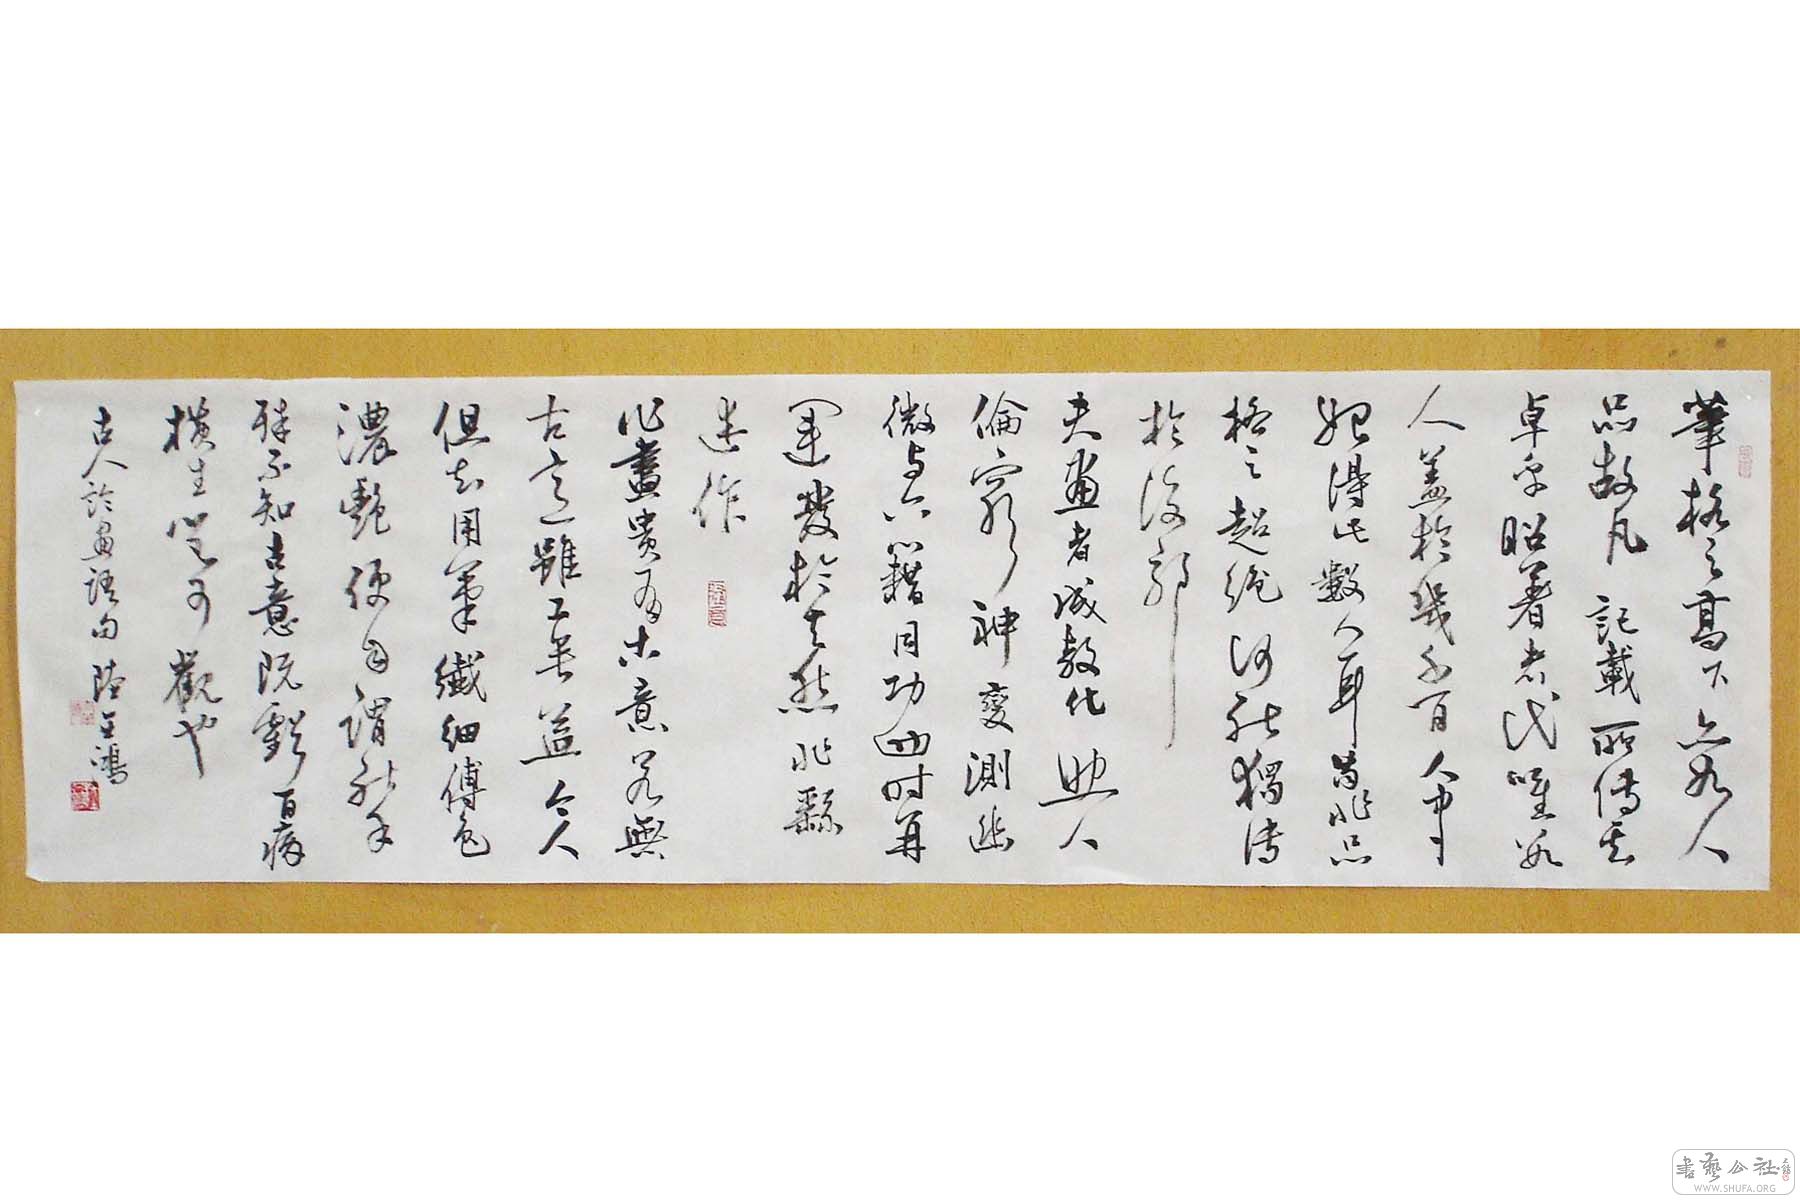 筆格之高下亦如人
品故凡記載所傳其
卓乎昭著者代唯數
人蓋於幾千百人中
始得此數人耳苟非品
格之超絕何能獨傳
於後耶
夫畫者成教化助人
倫窮神變測幽
微與六籍同功四時并
運發於天然非繇
述作
作畫貴有古意若無
古意雖工無益今人
但知用筆纖細傅色
濃艷便自謂能手
殊不知古意既虧百病
橫生豈可觀也
古人論畫語句 陸 鴻
書藝公社
WWW.SHUFA.ORG